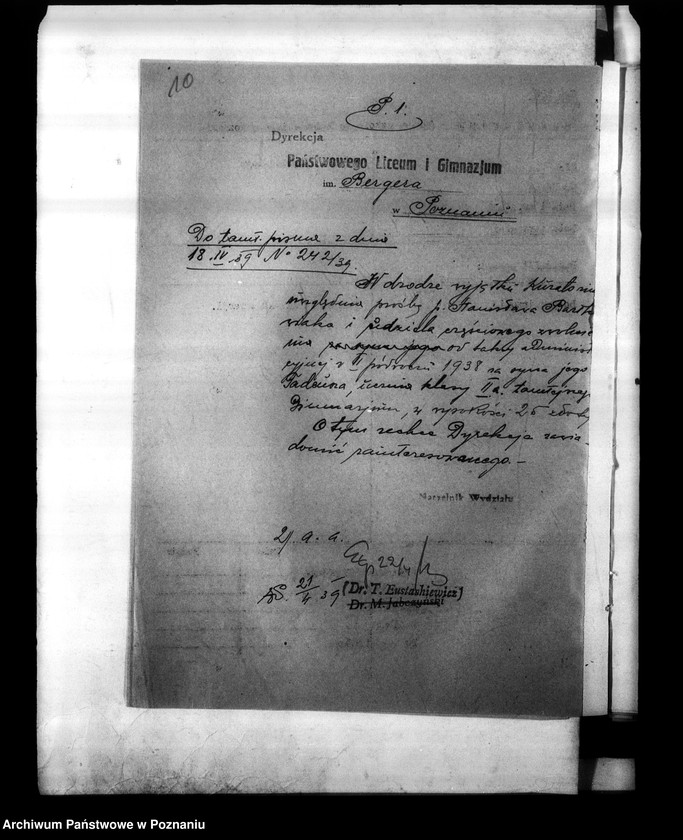 10
P. 1.
Dyrekcja
Państwowego Liceum i Gimnazjum
im. Bergera
w Poznaniu
Do tamt. pisma z dnia
18.IV.39 No 242/39.
W drodze wyjątku Kuratorium
uwzględnia prośby p. Stanisława Bartko
wiaka i udziela czesciowego zwolnie
nia od taksy administr
cyjnej w II półroczu 1938 za syna jego
Tadeusza, ucznia klasy IIa. tamtejszego
Gimnazjum, w wysokości 25 złotych
O tym zechce Dyrekcja zawia-
domić zainteresowanego.-
Naczelnik Wydziału
2/. a. a.
22/4
21/4 39
(Dr. T. Eustachiewicz)
Dr. M. Jabczyński
Archiwum Państwowe w Poznaniu